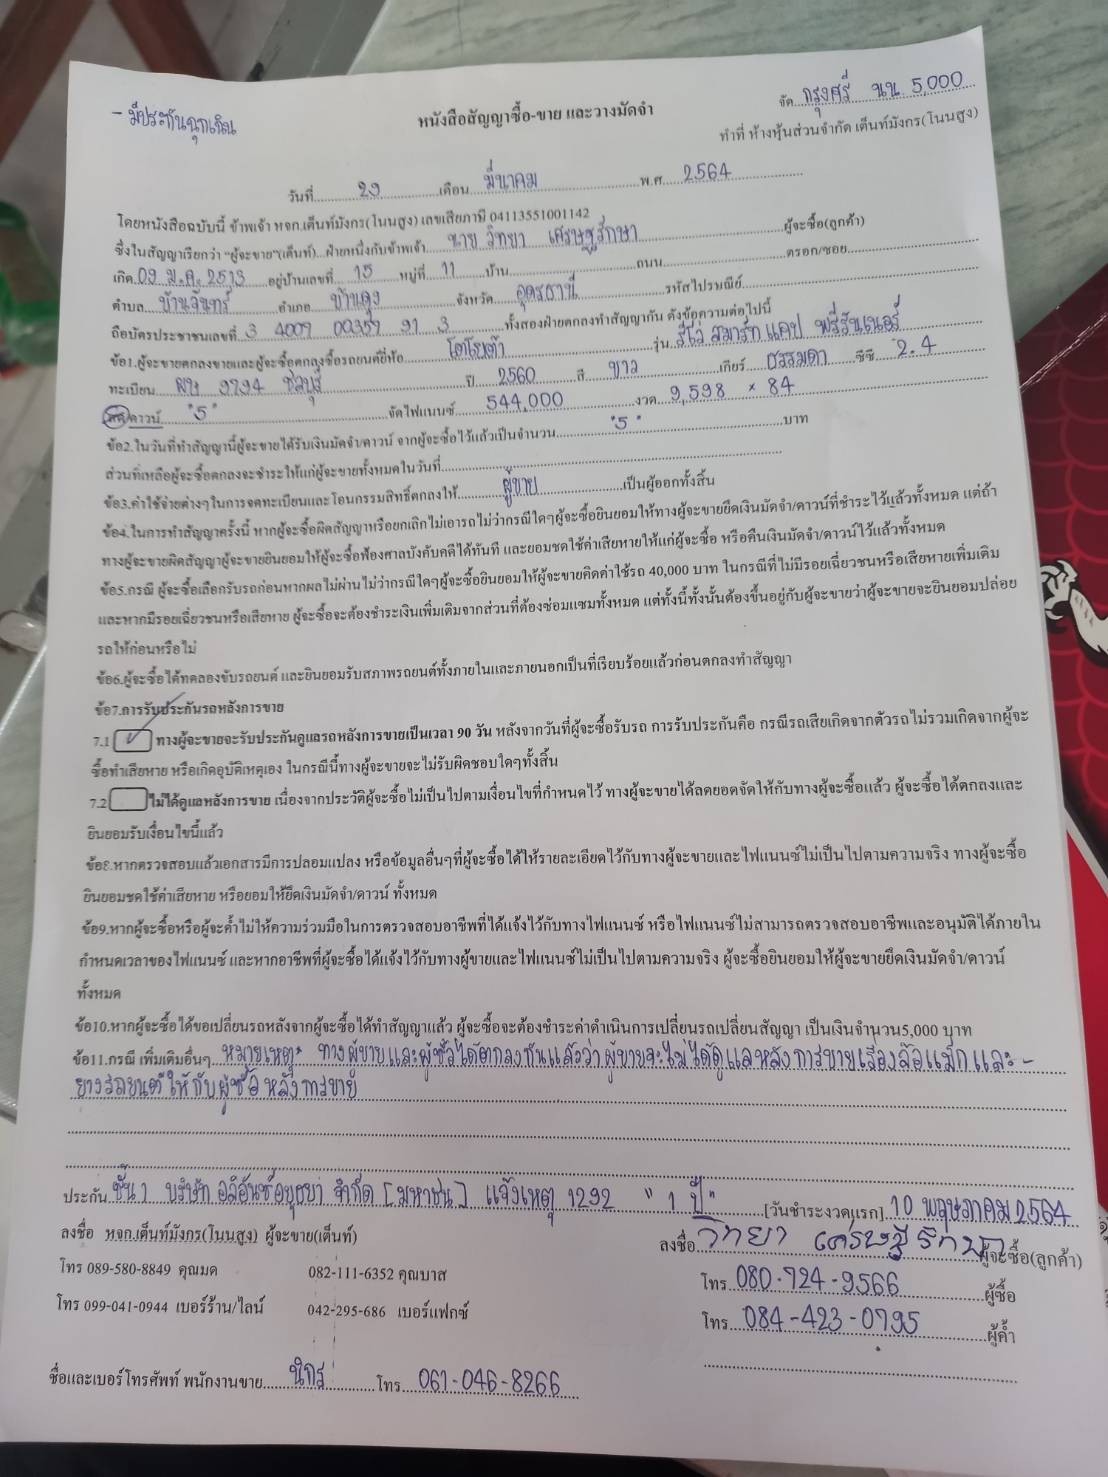 - มีประกันฉุกเฉิน
จัด กรุงศรี นน 5,000
หนังสือสัญญาซื้อ-ขาย และวางมัดจำ
ทำที่ ห้างหุ้นส่วนจำกัด เต็นท์มังกร(โนนสูง)
วันที่ 29 เดือน มีนาคม พ.ศ. 2564
โดยหนังสือฉบับนี้ ข้าพเจ้า หจก.เต็นท์มังกร(โนนสูง) เลขเสียภาษี 04113551001142
ซึ่งในสัญญาเรียกว่า "ผู้จะขาย"(เต็นท์)...ฝ่ายหนึ่งกับข้าพเจ้า นาย วิทยา เศรษฐรักษา ผู้จะซื้อ(ลูกค้า)
เกิด 09 ม.ค. 2513 อยู่บ้านเลขที่ 15 หมู่ที่ 11 บ้าน ถนน ตรอก/ซอย
ตำบล บ้านจันทร์ อำเภอ บ้านดุง จังหวัด อุดรธานี รหัสไปรษณีย์
ถือบัตรประชาชนเลขที่ 3 4009 00357 91 3 ทั้งสองฝ่ายตกลงทำสัญญากัน ดังข้อความต่อไปนี้
ข้อ1.ผู้จะขายตกลงขายและผู้จะซื้อตกลงซื้อรถยนต์ยี่ห้อ โตโยต้า รุ่น รีโว่ สมาร์ท แคป พรีรันเนอร์
ทะเบียน 9794 ชลบุรี ปี 2560 สี ขาว เกียร์ ธรรมดา ซีซี 2.4
สด/ดาวน์ "5" จัดไฟแนนซ์ 544,000 งวด 9,598 × 84
ข้อ2.ในวันที่ทำสัญญานี้ผู้จะขายได้รับเงินมัดจำ/ดาวน์ จากผู้จะซื้อไว้แล้วเป็นจำนวน "5" บาท
ส่วนที่เหลือผู้จะซื้อตกลงจะชำระให้แก่ผู้จะขายทั้งหมดในวันที่
ข้อ3.ค่าใช้จ่ายต่างๆในการจดทะเบียนและโอนกรรมสิทธิ์ตกลงให้ ผู้ขาย เป็นผู้ออกทั้งสิ้น
ข้อ4.ในการทำสัญญาครั้งนี้ หากผู้จะซื้อผิดสัญญาหรือยกเลิกไม่เอารถไม่ว่ากรณีใดๆผู้จะซื้อยินยอมให้ทางผู้จะขายยึดเงินมัดจำ/ดาวน์ที่ชำระไว้แล้วทั้งหมด แต่ถ้า
ทางผู้จะขายผิดสัญญาผู้จะขายยินยอมให้ผู้จะซื้อฟ้องศาลบังคับคดีได้ทันที และยอมชดใช้ค่าเสียหายให้แก่ผู้จะซื้อ หรือคืนเงินมัดจำ/ดาวน์ไว้แล้วทั้งหมด
ข้อ5.กรณี ผู้จะซื้อเลือกรับรถก่อนหากผลไม่ผ่านไม่ว่ากรณีใดๆผู้จะซื้อยินยอมให้ผู้จะขายคิดค่าใช้รถ 40,000 บาท ในกรณีที่ไม่มีรอยเฉี่ยวชนหรือเสียหายเพิ่มเติม
และหากมีรอยเฉี่ยวชนหรือเสียหาย ผู้จะซื้อจะต้องชำระเงินเพิ่มเติมจากส่วนที่ต้องซ่อมแซมทั้งหมด แต่ทั้งนี้ทั้งนั้นต้องขึ้นอยู่กับผู้จะขายว่าผู้จะขายจะยินยอมปล่อย
รถให้ก่อนหรือไม่
ข้อ6.ผู้จะซื้อได้ทดลองขับรถยนต์ และยินยอมรับสภาพรถยนต์ทั้งภายในและภายนอกเป็นที่เรียบร้อยแล้วก่อนตกลงทำสัญญา
ข้อ7.การรับประกันรถหลังการขาย
7.1 ✓ ทางผู้จะขายจะรับประกันดูแลรถหลังการขายเป็นเวลา 90 วัน หลังจากวันที่ผู้จะซื้อรับรถ การรับประกันคือ กรณีรถเสียเกิดจากตัวรถไม่รวมเกิดจากผู้จะ
ซื้อทำเสียหาย หรือเกิดอุบัติเหตุเอง ในกรณีนี้ทางผู้จะขายจะไม่รับผิดชอบใดๆทั้งสิ้น
7.2 ไม่ได้ดูแลหลังการขาย เนื่องจากประวัติผู้จะซื้อไม่เป็นไปตามเงื่อนไขที่กำหนดไว้ ทางผู้จะขายได้ลดยอดจัดให้กับทางผู้จะซื้อแล้ว ผู้จะซื้อได้ตกลงและ
ยินยอมรับเงื่อนไขนี้แล้ว
ข้อ8.หากตรวจสอบแล้วเอกสารมีการปลอมแปลง หรือข้อมูลอื่นๆที่ผู้จะซื้อได้ให้รายละเอียดไว้กับทางผู้จะขายและไฟแนนซ์ไม่เป็นไปตามความจริง ทางผู้จะซื้อ
ยินยอมชดใช้ค่าเสียหาย หรือยอมให้ยึดเงินมัดจำ/ดาวน์ ทั้งหมด
ข้อ9.หากผู้จะซื้อหรือผู้จะค้ำไม่ให้ความร่วมมือในการตรวจสอบอาชีพที่ได้แจ้งไว้กับทางไฟแนนซ์ หรือไฟแนนซ์ไม่สามารถตรวจสอบอาชีพและอนุมัติได้ภายใน
กำหนดเวลาของไฟแนนซ์ และหากอาชีพที่ผู้จะซื้อได้แจ้งไว้กับทางผู้ขายและไฟแนนซ์ไม่เป็นไปตามความจริง ผู้จะซื้อยินยอมให้ผู้จะขายยึดเงินมัดจำ/ดาวน์
ทั้งหมด
ข้อ10.หากผู้จะซื้อได้ขอเปลี่ยนรถหลังจากผู้จะซื้อได้ทำสัญญาแล้ว ผู้จะซื้อจะต้องชำระค่าดำเนินการเปลี่ยนรถเปลี่ยนสัญญา เป็นเงินจำนวน5,000 บาท
ข้อ11.กรณี เพิ่มเติมอื่นๆ หมายเหตุ* ทางผู้ขายและผู้ซื้อได้ตกลงกันแล้วว่า ผู้ขายจะไม่ได้ดูแลหลังการขายเรื่องล้อแม็กและ -
ยางรถยนต์ให้กับผู้ซื้อ หลังการขาย
ประกัน ชั้น 1 บริษัท อลิอันซ์อยุธยา จำกัด [มหาชน] แจ้งเหตุ 1292 " 1 ปี " [วันชำระงวดแรก] 10 พฤษภาคม 2564
ลงชื่อ หจก.เต็นท์มังกร(โนนสูง) ผู้จะขาย(เต็นท์)
ลงชื่อ วิทยา เศรษฐรักษา ผู้จะซื้อ(ลูกค้า)
โทร 089-580-8849 คุณมด 082-111-6352 คุณบาส
โทร 080-724-9566 ผู้ซื้อ
โทร 099-041-0944 เบอร์ร้าน/ไลน์ 042-295-686 เบอร์แฟกซ์
โทร 084-423-0795 ผู้ค้ำ
ชื่อและเบอร์โทรศัพท์ พนักงานขาย นิกร โทร 061-046-8266